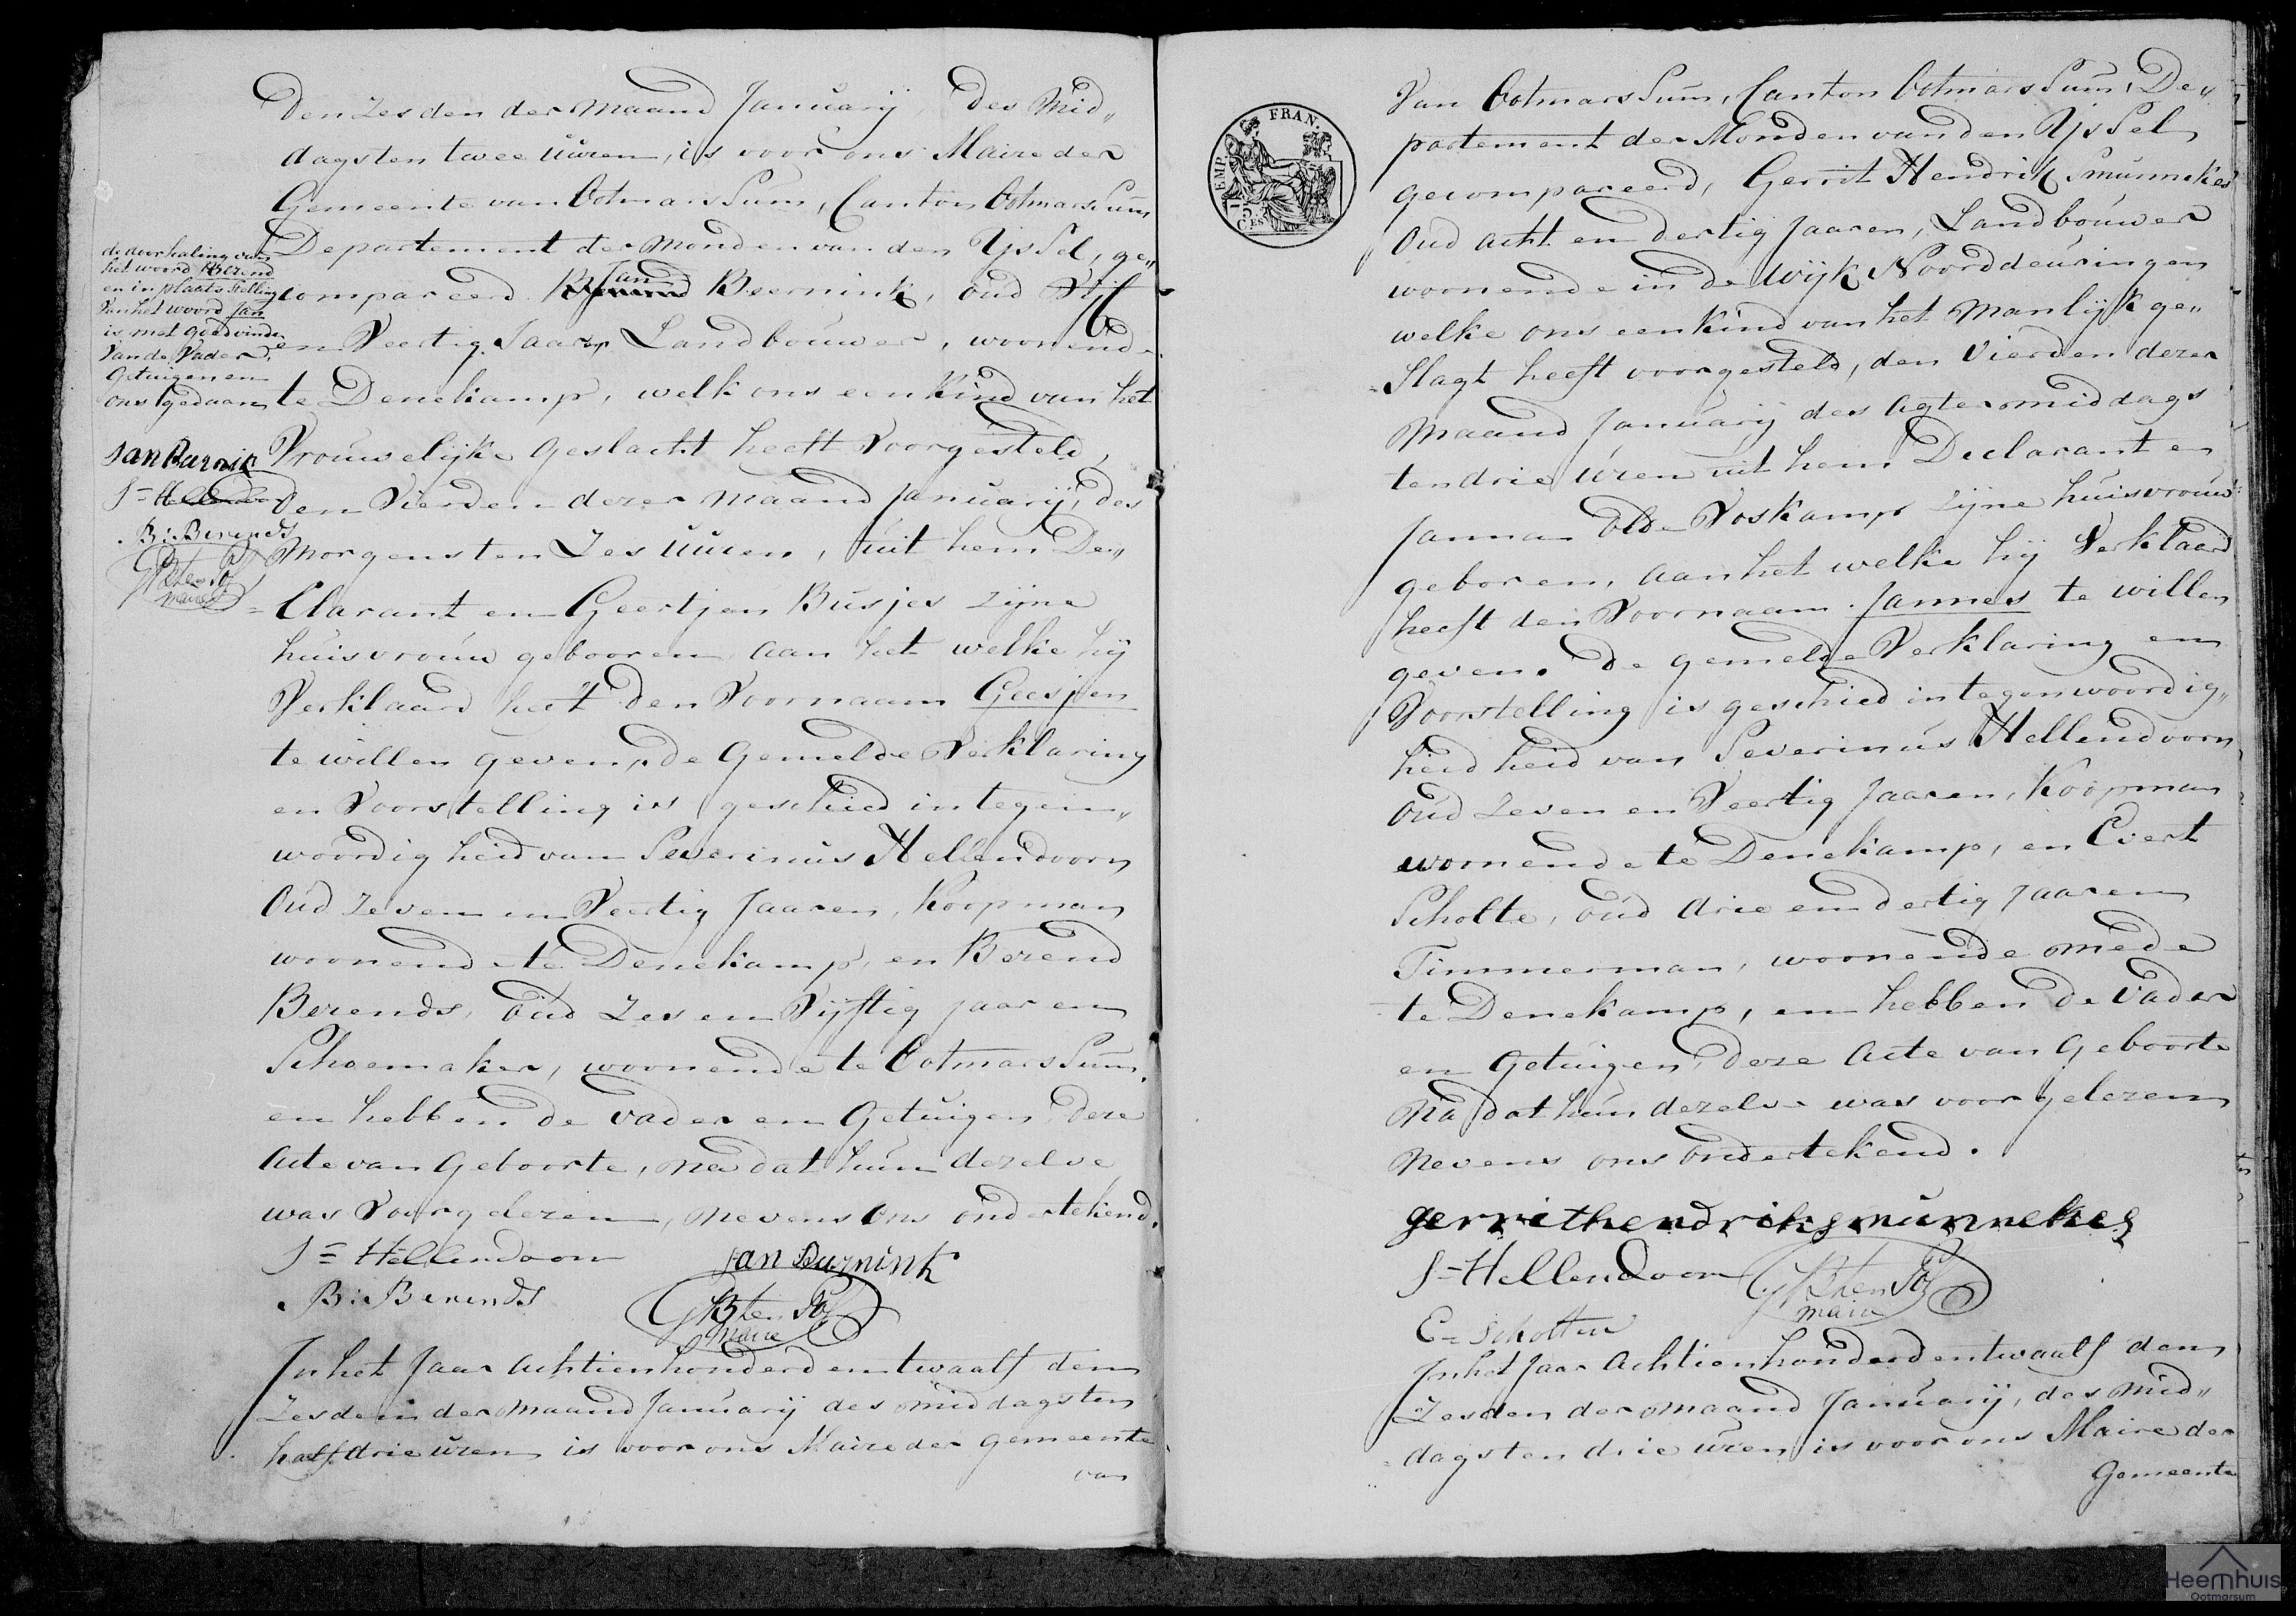 Den Zesden der Maand Januarij, des Mid„
dags ten twee uuren, is voor ons Maire der
Gemeente van OotmarsSum, Canton OotmarsSum
Departement der Monden van den YsSel, ge„
compareerd Jan Beernink, oud Vijf
en Veertig Jaar, Landbouwer, woonende
te Denekamp, welk ons een Kind van het
Vrouwelijke Geslacht heeft Voorgesteld,
den Vierden dezer Maand Januarij, des
Morgens ten Zes Uuren, uit hem De„
Clarant en Geertjen Busjes zijne
huisvrouw gebooren aan het welke hij
Verklaard heeft den Voornaam Geesjen
te willen geven, de Gemelde Verklaring
en Voorstelling is geschied in tegen„
woordigheid van Severinus Hellendoorn
Oud Zeven en Veertig Jaaren, Koopman
woonende te Denekamp, en Berend
Berends, Oud Zes en Vijftig jaaren
Schoemaker, woonende te OotmarsSum,
en hebben de Vader en Getuigen deze
Acte van Geboorte, na dat hun dezelve
was Voorgelezen, nevens Ons ondertekend.
S= Hellendoorn
Jan Burnink
B: Berends
GB ten Pol
Maire
In het Jaar Achtienhonderd en twaalf den
Zesden der Maand Januarij des middags ten
half drie uren is voor ons Maire der Gemeente
van
de doorhaling van
het woord Berend
en in plaats Stelling
van het woord Jan
is met goedvinden
van de Vader,
Getuigen en
ons gedaan
Jan Burnink
S= Hellendoorn
B: Berends
GB ten Pol
maire
EMP. FRAN.
75
CES
Van OotmarsSum, Canton OotmarsSum, De„
partement der Monden van den YsSel
gecompareerd, Gerrit Hendrik Smunnekes
Oud acht en dertig Jaaren, Landbouwer
woonende in de Wijk Noorddeuringen
welke ons een Kind van het Manlijk ge„
Slagt heeft voorgesteld, den Vierden dezer
Maand Januarij des Agtermiddags
ten drie uren uit hem Declarant en
Janna Olde Voskamp zijne huisvrouw
geboren, aan het welke hij Verklaard
heeft den Voornaam Jannes te willen
geven. De gemelde Verklaring en
Voorstelling is geschied in tegenwoordig„
heid heid van Severinus Hellendoorn
Oud Zeven en Veertig Jaaren, Koopman
woonende te Denekamp, en Evert
Scholte, oud drie en dertig Jaaren
Timmerman, woonende mede
te Denekamp, en hebben de Vader
en Getuigen deze Acte van Geboorte
Na dat hun dezelve was voorgelezen
Nevens ons ondertekend.
gerrithendriksmunnekes
S= Hellendoorn
GB ten Pol
maire
E= Scholten
In het Jaar Achtienhonderd en twaalf den
Zesden der Maand Januarij, des Mid„
dags ten drie uren is voor ons Maire der
Gemeente
Heemhuis
Ootmarsum